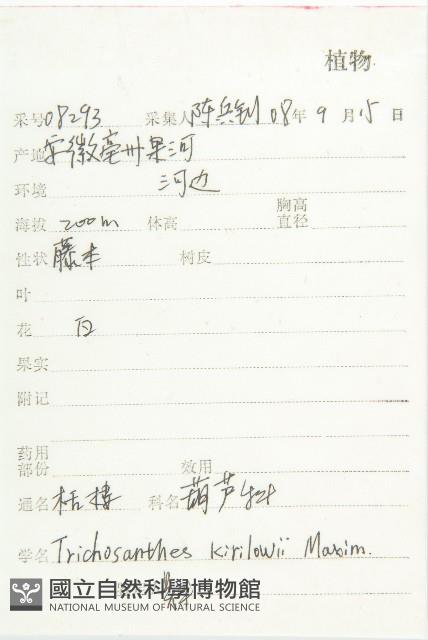 植物
采号 08293 采集人 陈兵钊 08年 9月15日
产地 安徽亳州果河
环境 河边
海拔 200m 体高 胸高直径
性状 藤本 树皮
叶
花 白
果实
附记
药用部份 效用
通名 栝楼 科名 葫芦科
学名 Trichosanthes kirilowii Maxim.
國立自然科學博物館
NATIONAL MUSEUM OF NATURAL SCIENCE